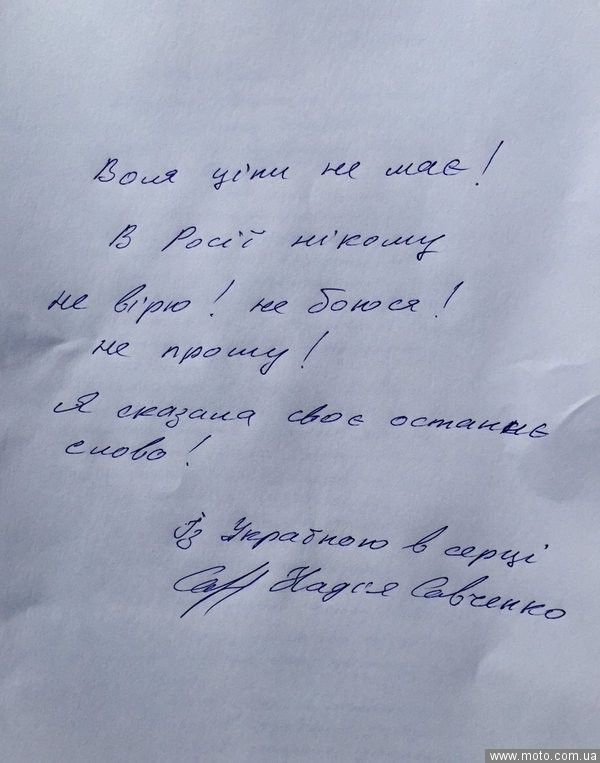 Воля ціни не має!
В Росії нікому
не вірю! не боюся!
не прошу!
Я сказала своє останнє
слово!
Із Україною в серці
Надія Савченко
www.moto.com.ua